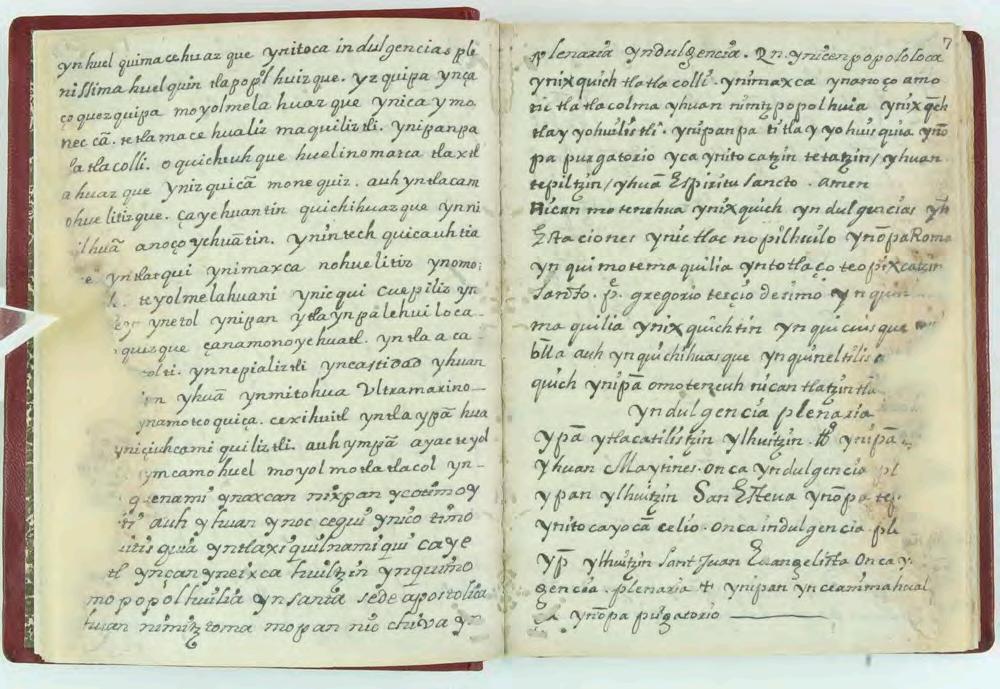 ynhuel quimacehuazque ynitoca indulgencias ple
nissima huelquin tlapopolhuizque. yzquipa ynça
ço quezquipa moyolmela huazque ynica y mo
nec cā. tetlamacehualiz maquiliztli. ynipanpa
tlatlacolli. oquichiuhque huelinomaca tlaxtl
ahuazque ynizquicā monequiz. auh yntlacam
ohuelitizque. ça yehuantin quichihuazque ynni
ilhuā anoço yehuātin. ynintech quicauhtia
yntlatqui ynimaxca nohuelitiz ynomo
teyolmelahuani ynicqui cuepiliz yn
ynetol ynipan ytla ynpalehuiloca
quizque çanamonoyehuatl. yntla aca
ynnepializtli yncastidad yhuan
yhuā ynmitohua Ultramarino
ynamotcoquiça. cexihuitl yntlaypā hua
yniçiuhcami quiliztli. auh ympā ayac teyol
ymcamo huel moyolmotlatlacol yn
quenami ynaxcan nixpan ycotimoy
auh yhuan ynoc cequi ynico timo
quia yntlaxiquilnamiqui caye
tl ynçan yneixcahuiltzin ynquimo
mopopolhuilia ynsanta sede apostolica
huan nimitztoma mopan nic chiva yn
7
plenaria yndulgencia. Qn. ynicenpopololoca
ynixquich tlatlacolli. ynimaxca ynanoço amo
tic tlatlacolma yhuan nimitzpopolhuia ynixqch
tlayyohuilistli. ynipanpa titlayyohuisquia ynō
pa purgatorio yca ynitocatzin tetatzin / yhuan
tepiltzin / yhuā Espiritu sancto. amen
Nican motenehua ynixquich yndulgencias yh
Estaciones ynictlac nopilhuilo ynōpa Roma
yn quimotemaquilia yntotlaço teopixcatzin
Sancto. pe. gregorio terçio desimo yn qui
maquilia ynixquichtin yn quicuisque
blla auh yn quichihuasque ynquineltilis
quich ynipā omoteneuh nican tlatzintla
yndulgencia plenaria
ypā ytlacatilistzin ylhuitzin. ynipā
yhuan Maytines. onca yndulgencia pl
ypan ylhuitzin San Esteua ynōpa tep
ynitocayocā celio. onca indulgencia ple
yp̄ ylhuitzin Sant Juan Euangelista Onca y
gencia. plenaria ynipan ynceanimahual
ynōpa purgatorio